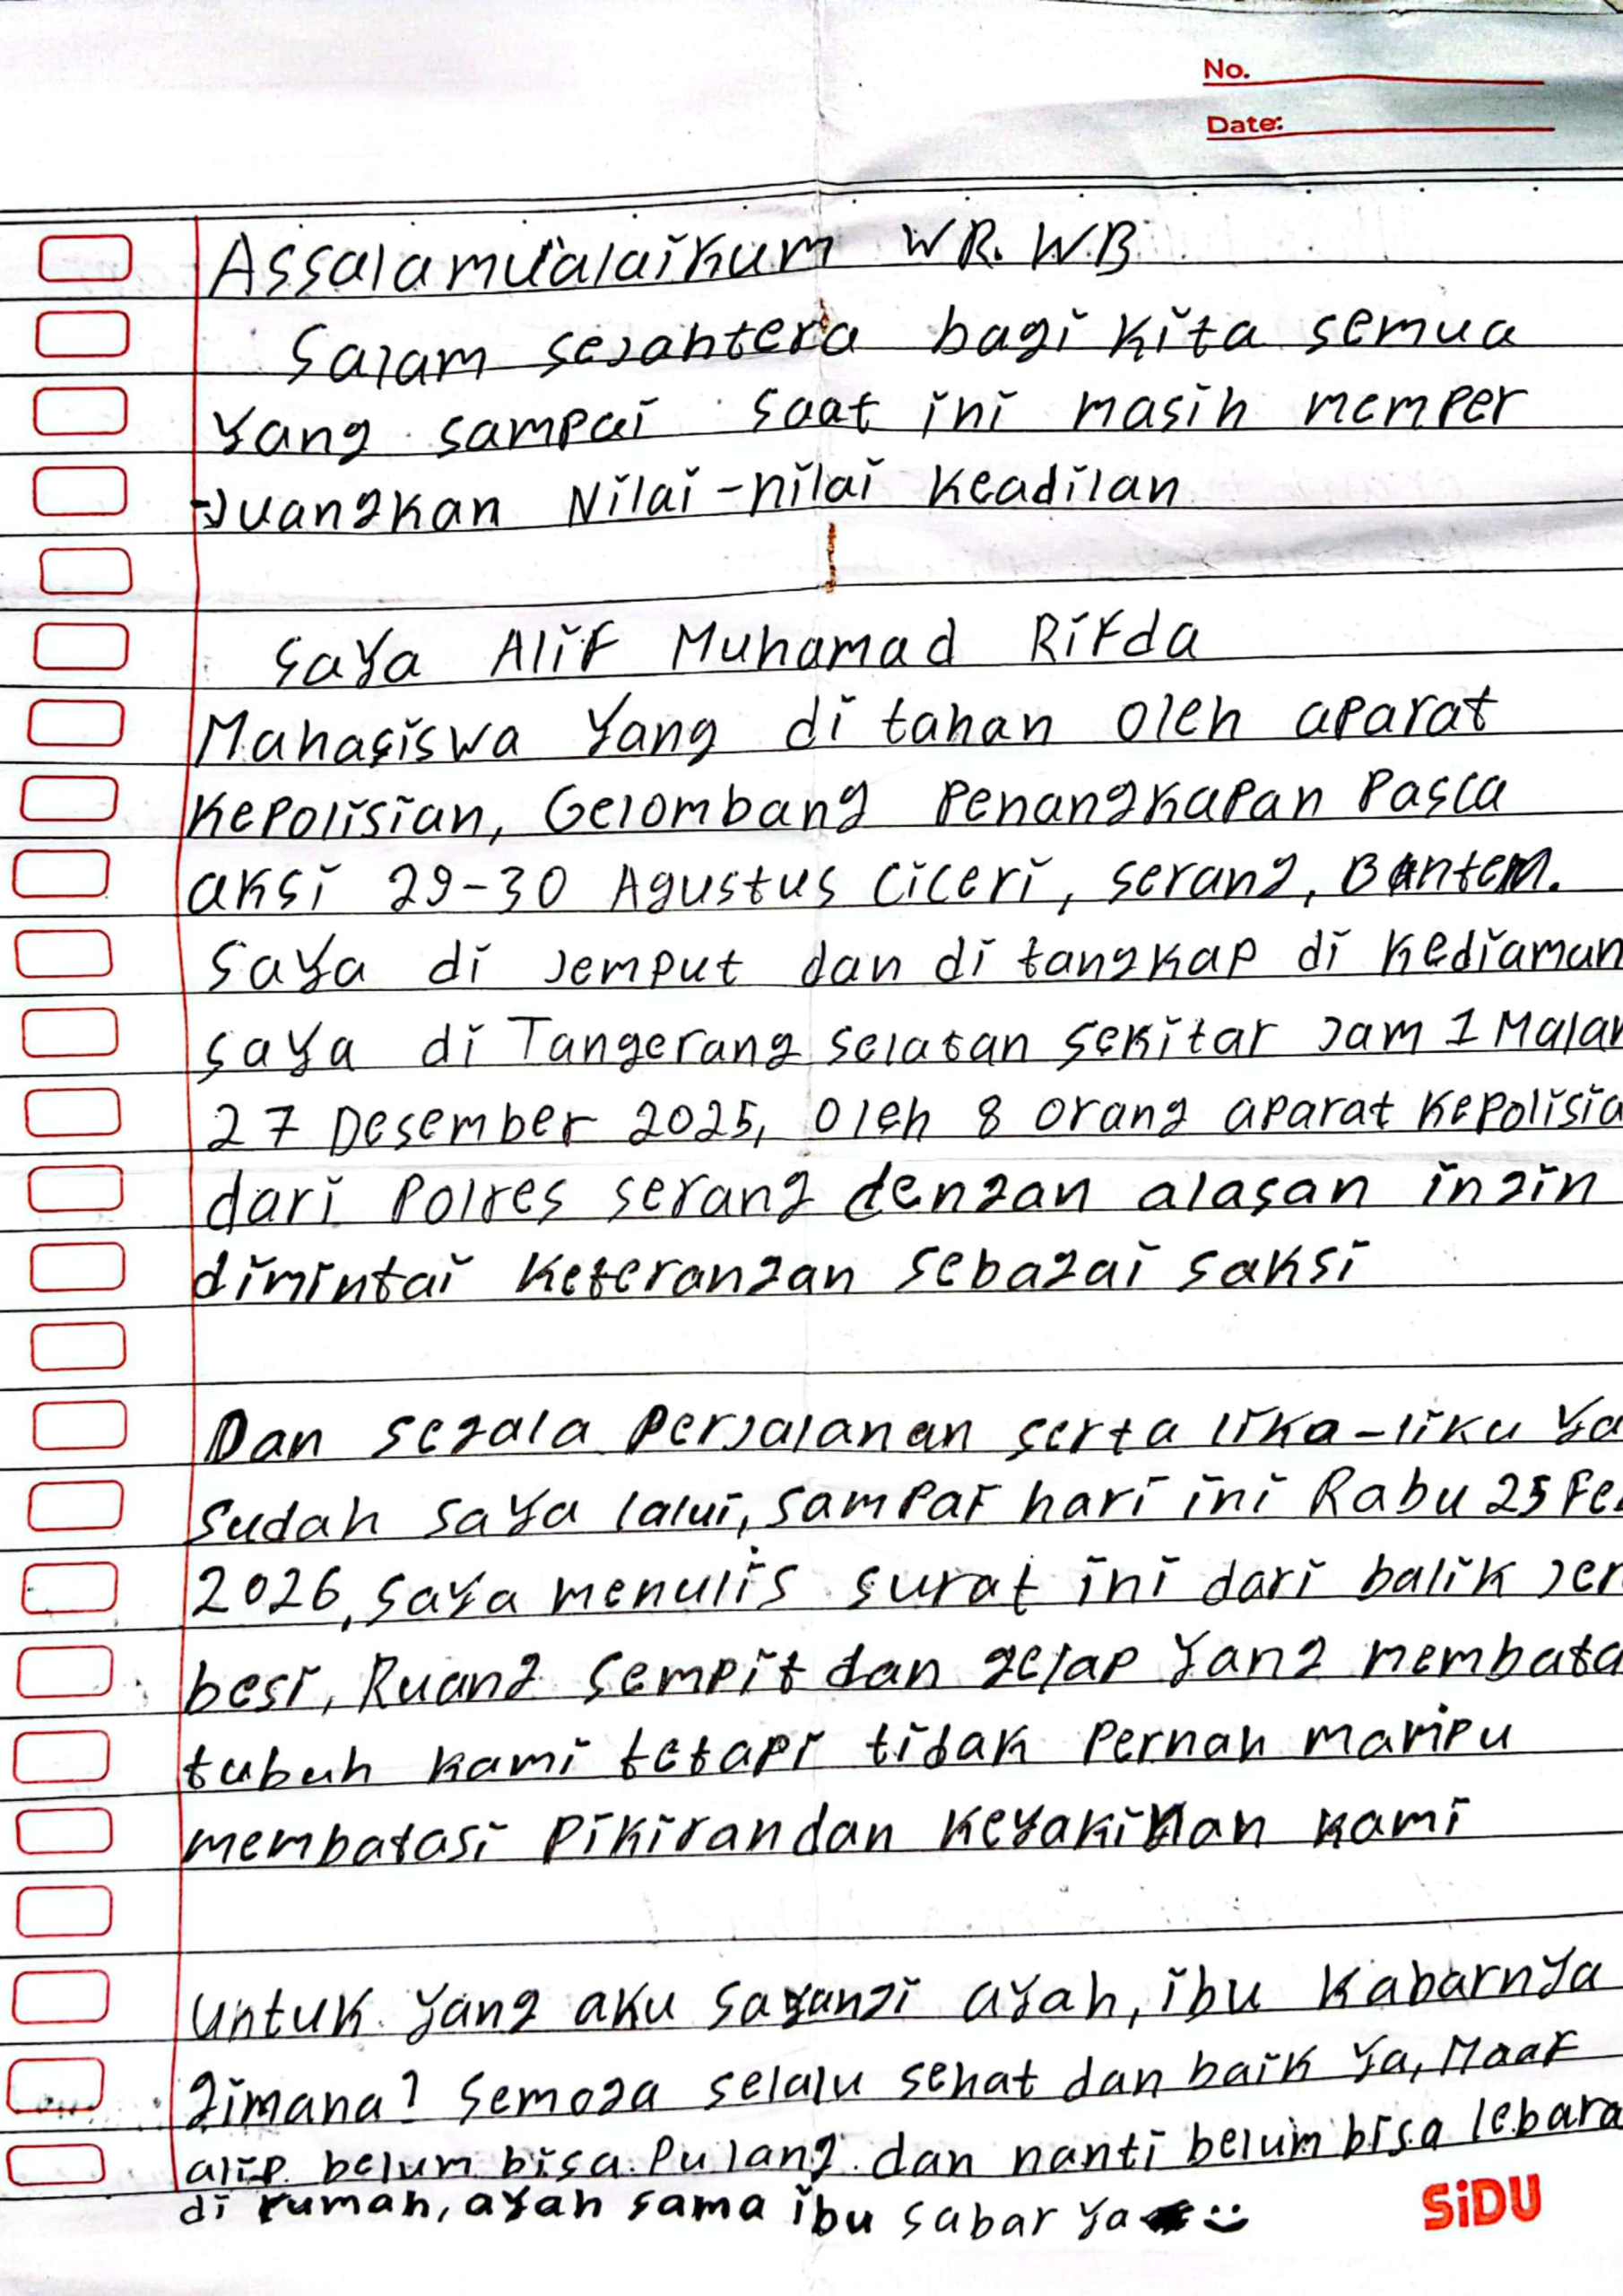 No.
Date:
Assalamu'alaikum WR. WB
Salam sejahtera bagi kita semua
Yang sampai saat ini masih memper
-juangkan Nilai-nilai keadilan
Saya Alif Muhamad Rifda
Mahasiswa Yang di tahan oleh aparat
Kepolisian, Gelombang Penangkapan Pasca
aksi 29-30 Agustus Ciceri, serang, Banten.
Saya di jemput dan di tangkap di kediaman
saya di Tangerang selatan sekitar jam 1 Malam
27 Desember 2025, oleh 8 orang aparat kepolisia
dari Polres serang dengan alasan ingin
dimintai keterangan sebagai saksi
Dan segala perjalanan serta lika-liku Ya
sudah saya lalui, sampai hari ini Rabu 25 Fe
2026, saya menulis surat ini dari balik jer
besi, Ruang sempit dan gelap Yang membata
tubuh kami tetapi tidak Pernah mampu
membatasi Pikiran dan keyakinan kami
Untuk yang aku sayangi ayah, ibu kabarnya
gimana? Semoga selalu sehat dan baik ya, Maaf
alip belum bisa Pulang dan nanti belum bisa lebara
di rumah, ayah sama ibu sabar ya :)
SiDU